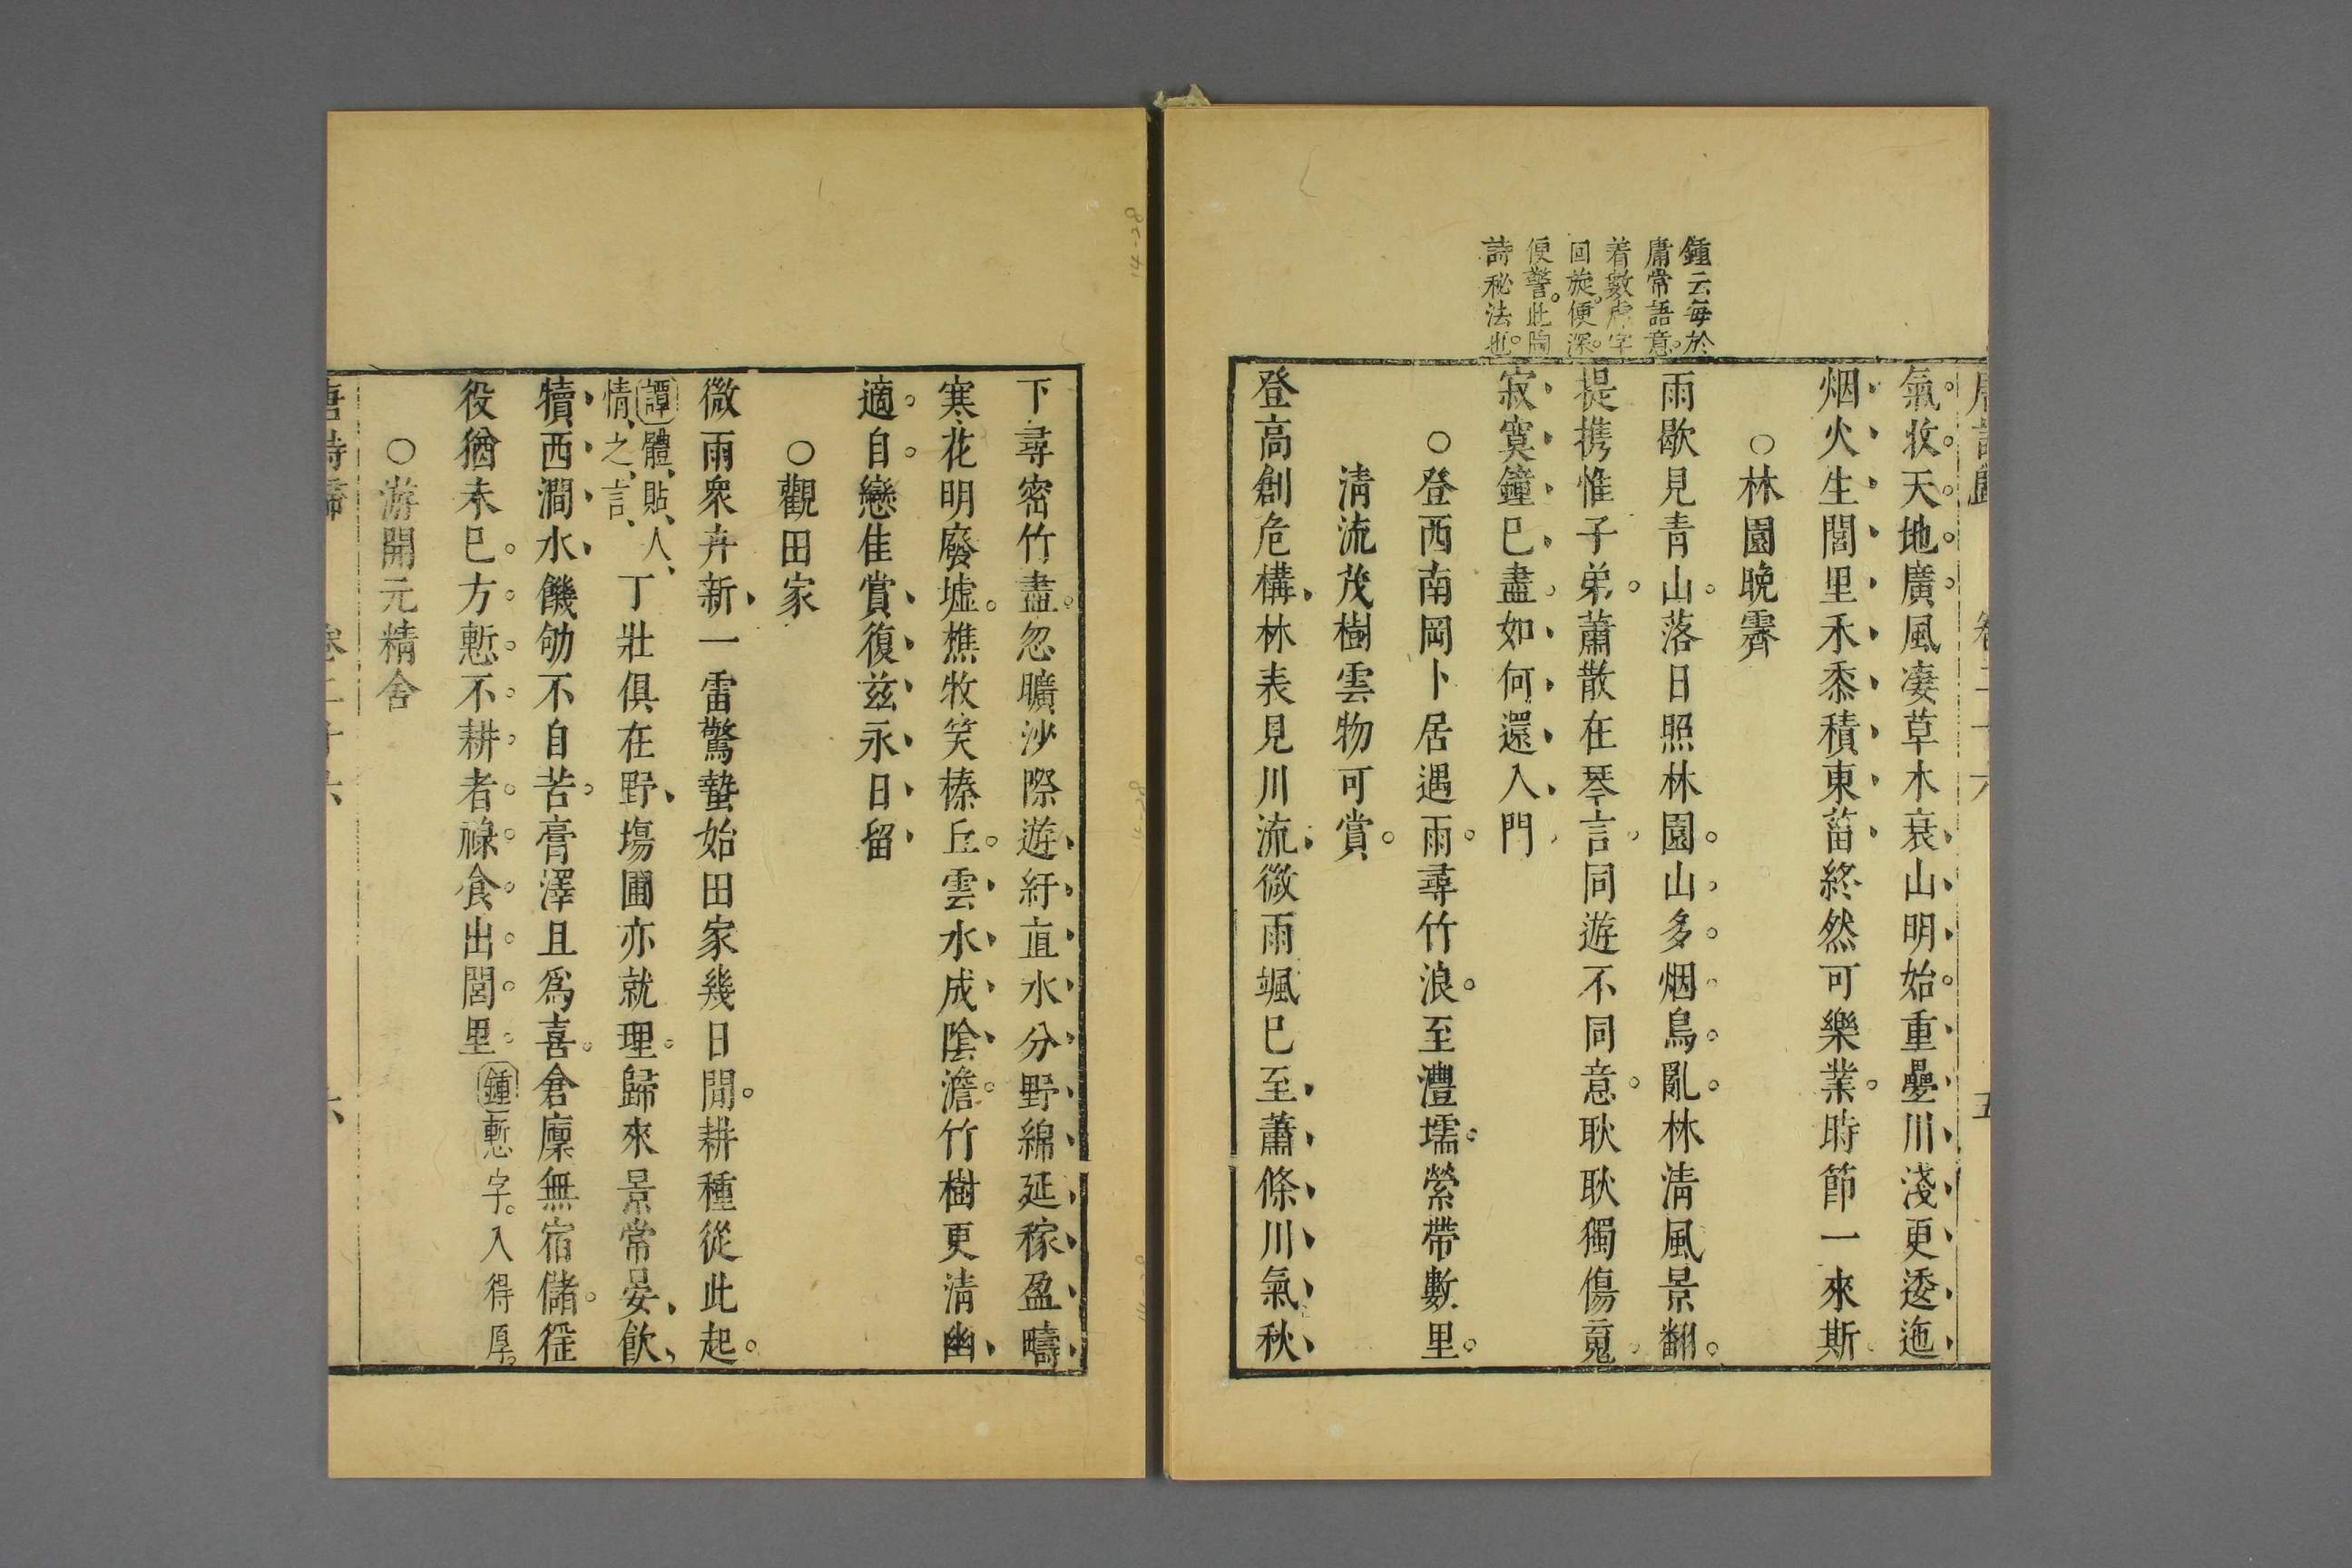 氣收天地廣風凄草木衰山明始重疊川淺更逶迤
烟火生閭里禾黍積東菑終然可樂業時節一來斯
○林園晚霽
雨歇見青山落日照林園山多烟鳥亂林清風景翻
提携惟子弟蕭散在琴言同遊不同意耿耿獨傷䰟
寂寞鐘已盡如何還入門
鍾云每於
庸常語意
着數虛字
回旋便深
便警此陶
詩秘法也
○登西南岡卜居遇雨尋竹浪至灃壖縈帶數里
清流茂樹雲物可賞
登高創危構林表見川流微雨颯已至蕭條川氣秋
下尋密竹盡忽曠沙際遊紆直水分野綿延稼盈疇
寒花明廢墟樵牧笑榛丘雲水成陰澹竹樹更清幽
適自戀佳賞復茲永日留
○觀田家
微雨衆卉新一雷驚蟄始田家幾日閒耕種從此起
譚體貼人
情之言
丁壯俱在野塲圃亦就理歸來景常晏飲
犢西澗水饑劬不自苦膏澤且爲喜倉廩無宿儲徭
役猶未已方慙不耕者祿食出閭里
鍾慙字入得厚
○游開元精舍
唐詩歸 卷二十六 六